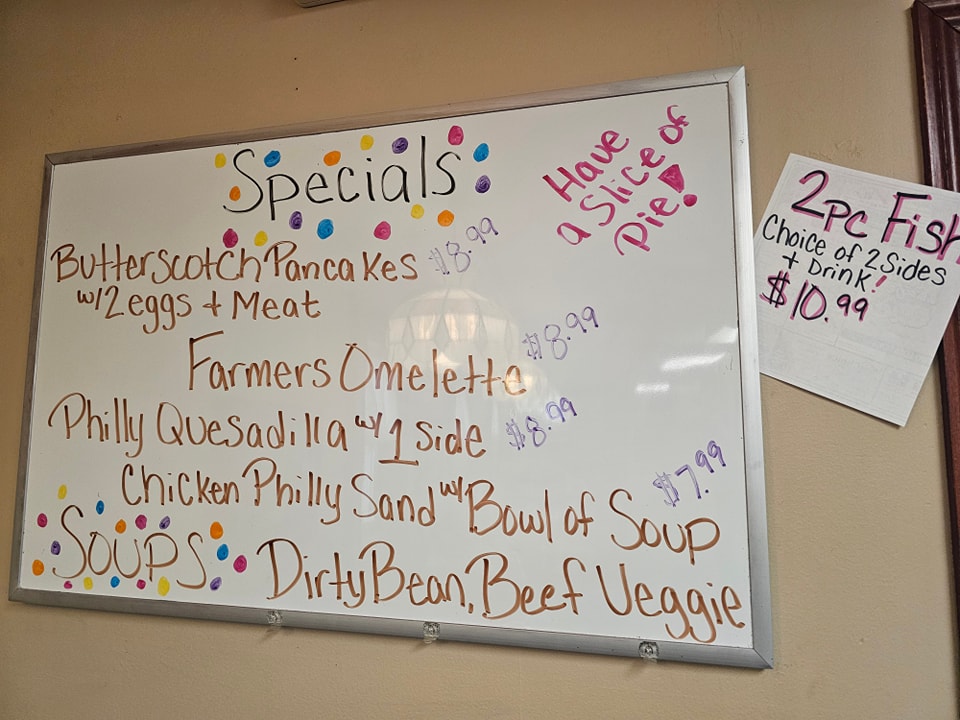 Specials
Have
a Slice of
Pie!
Butterscotch Pancakes $8.99
w/2 eggs + Meat
Farmers Omelette $8.99
Philly Quesadilla w/ 1 side $8.99
Chicken Philly Sand w/ Bowl of Soup $7.99
Soups Dirty Bean, Beef Veggie
2pc Fish
Choice of 2 Sides
+ Drink!
$10.99